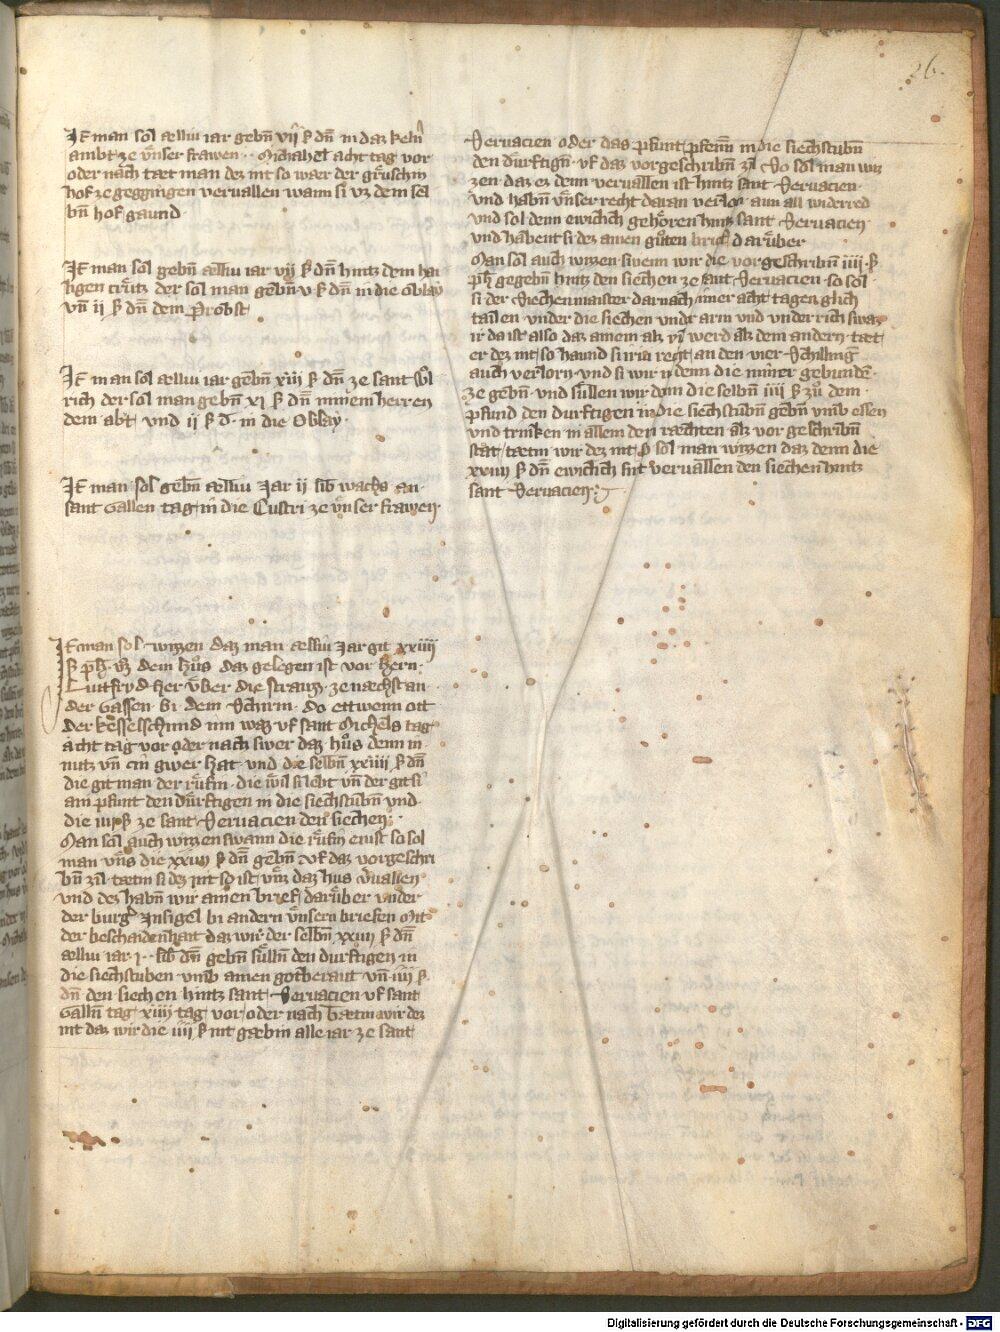 26.
It man sol ælliu iar gebn̄ vij ß dn̄ in daz keln̄
ambt ze vnser frawen·· Michahel acht tag vor
oder nach tæt man dez nit so wær der gruschin
hof ze geggingen veruallen wann si vz dem sel
bn̄ hof gaund·
It man sol gebn̄ ælliu iar vij ß dn̄ hintz dem hai
ligen crutz der sol man gebn̄ v ß dn̄ in die oblay
vn̄ ii ß dn̄ dem Probst
It man sol ælliu iar gebn̄ xiii ß dn̄ ze sant vͦl
rich der sol man gebn̄ xi ß dn̄ minem herren
dem abt vnd ii ß d· in die Oblay·
It man sol gebn̄ ælliu Jar ii lib wachs an
sant Gallen tag in die Custri ze vnser frawen·
It man sol wizzen daz man ælliu Jar git xxiiii
ß ph· vz dem hus daz gelegen ist vor hern
Luitfrid her vber die strauzz ze næchst an
der Gassen bi dem Schirm· do ettwenn ott
der kesselschmid inn waz vf sant Michels tag
acht tag vor oder nach swer daz hus denn in
nutz vn̄ in gwer hat· vnd die selbn̄ xxiiii ß dn̄
die git man der rufin· die wil si lebt vn̄ der git si
ain pfunt den durftigen in die siechstubn̄ vnd
die iiii ß ze sant Seruacien den siechen·
Man sol auch wizzen swann die rufin enist so sol
man vns die xxiiii ß dn̄ gebn̄ vf daz vorgeschri
bn̄ zil· tætin si dez nit so ist vnz daz hus vuallen
vnd dez habn̄ wir ainen brief daruber vnder
der burg Insigel bi andern vnsern briefen Mit
der beschaidenhait daz wir der selbn̄ xxiiii ß dn̄
ælliu iar i· lib dn̄ gebn̄ sulln̄ den durftigen in
die siechstuben vmb ainen gotberaut vn̄ iiii ß
dn̄ den siechen hintz sant Seruacien vf sant
Galln̄ tag xiiii tag vor oder nach Tætin wir dez
nit daz wir die iiii ß nit gæbin alle iar ze sant
Seruacien oder das pfunt pfenn̄ in die siechstubn̄
den durftign̄ vf daz vorgeschribn̄ zil So sol man wiz
zen daz ez denn veruallen ist hintz sant Seruacien·
vnd habn̄ vnser recht daran verlorn aun all widerred
vnd sol denn ewichlich gehören hintz sant Seruacien
vnd habent si dez ainen guten brief daruber
Man sol auch wizzen swenn wir die vorgeschribn̄ iiii ß
ph gegebn̄ hintz den siechen ze sant Seruacien so sol
si der Siechenmaister darnach inner acht tagen glich
tailen vnder die siechen vnder arm vnd vnder rich swaz
ir da ist also daz ainem als vil werd als dem andern tæt
er dez nit so haund si iriu recht an den vier Schilling
auch verlorn vnd si wir n denn die nimer gebunde
ze gebn̄ vnd sullen wir denn die selbn̄ iiii ß zu dem
pfund den durftigen in die siechstubn̄ gebn̄ vmb essen
vnd trinken in allem den ræchten als vor geschribn̄
stat tætin wir dez nit so sol man wizzen daz denn die
xxiiii ß dn̄ ewichlich sint veruallen den siechen hintz
sant Seruacien·
Digitalisierung gefördert durch die Deutsche Forschungsgemeinschaft - DFG